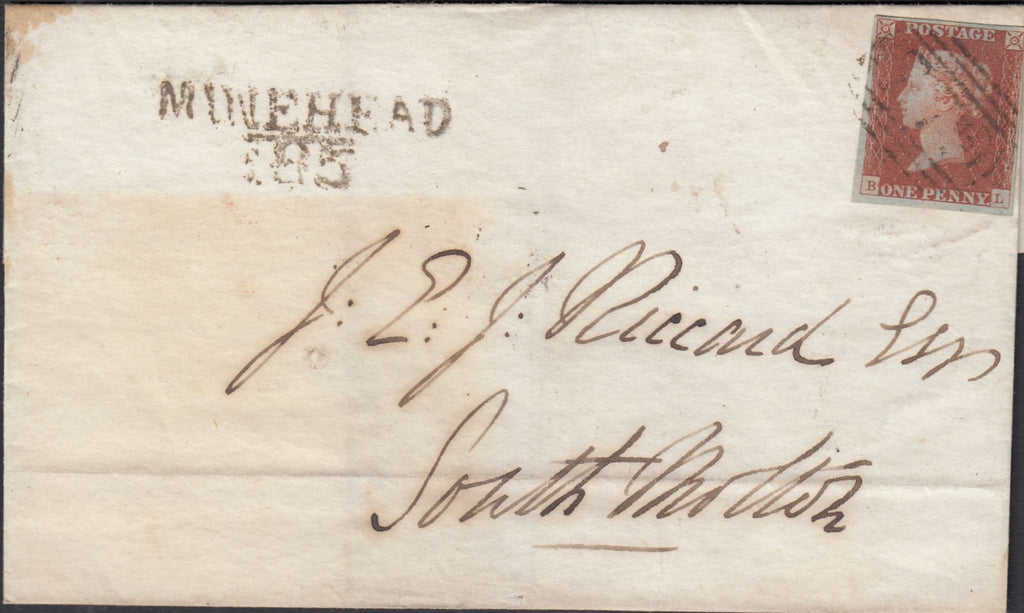 POSTAGE
B ONE PENNY. L
MINEHEAD
185
J. E. J. Riccard Esqr
South Molton